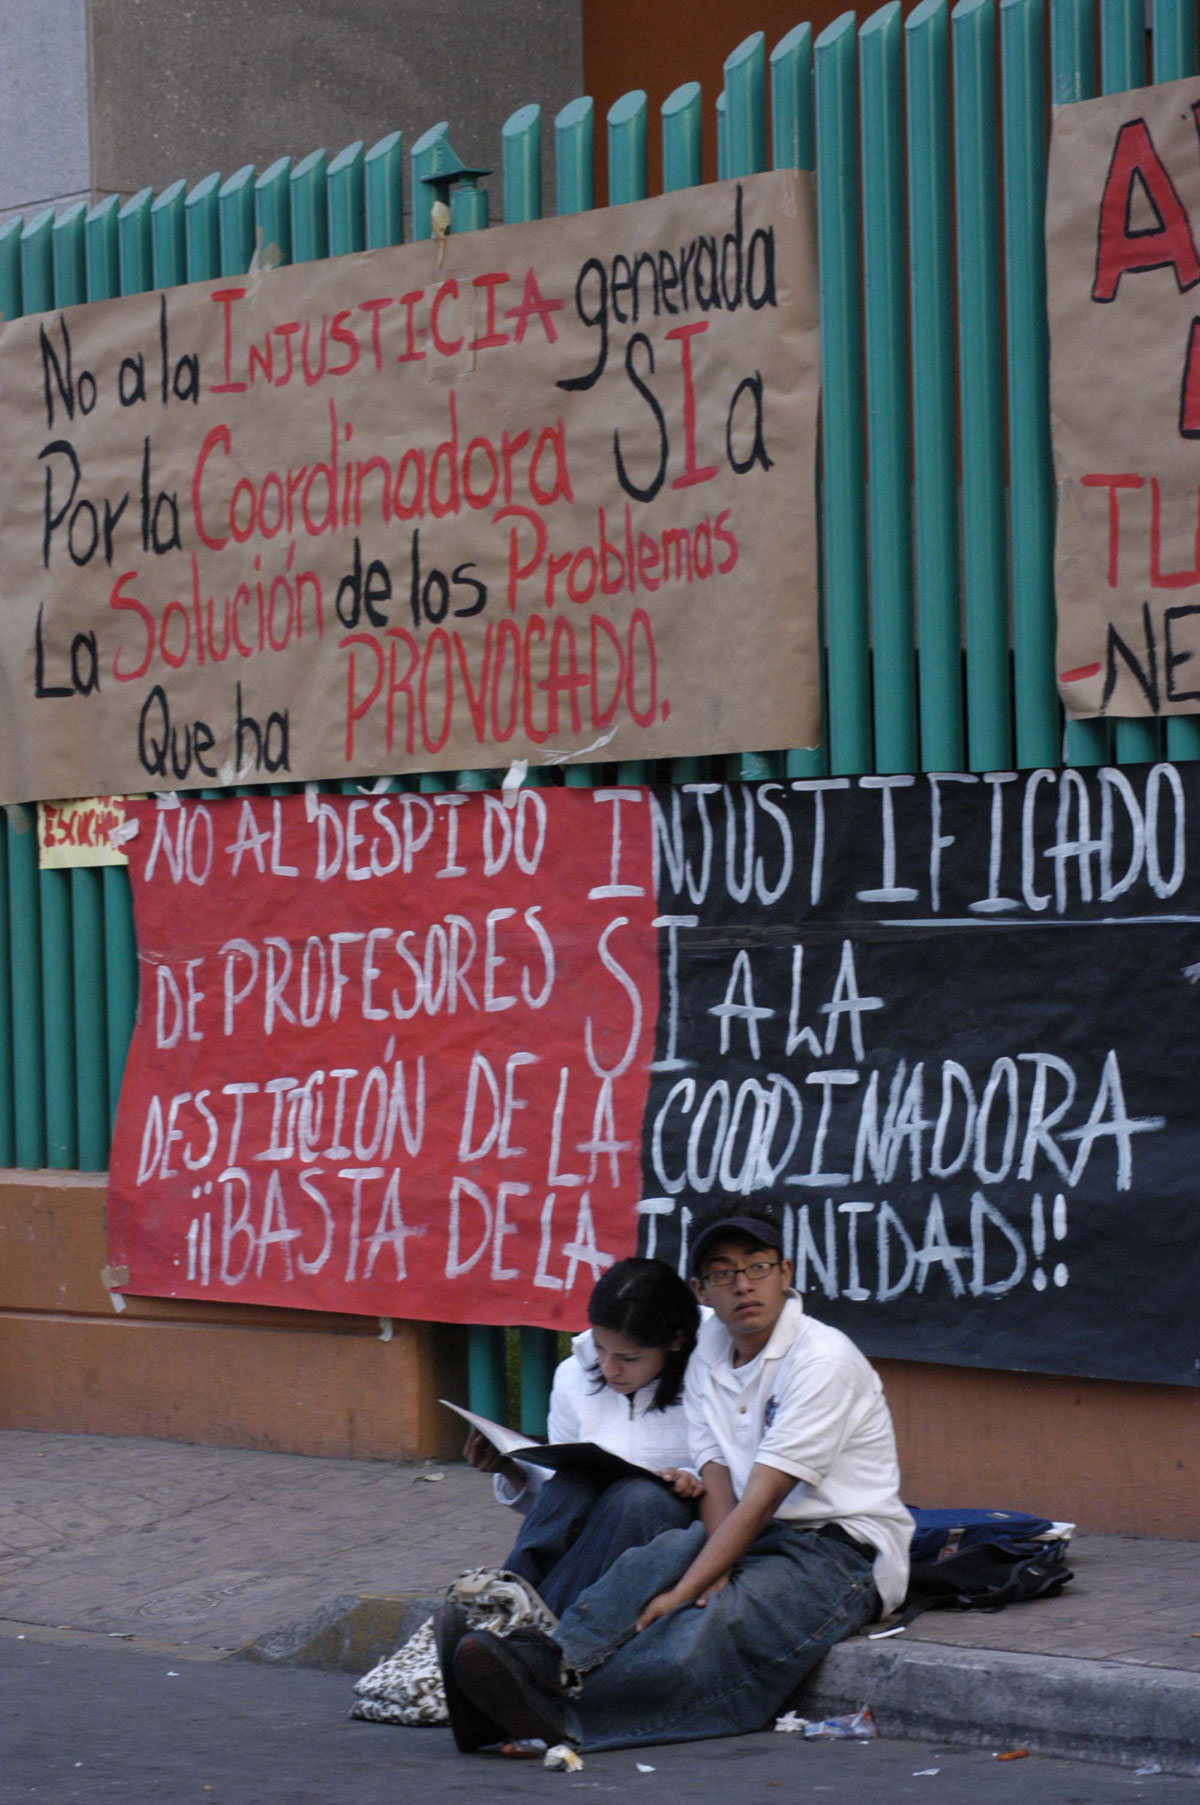 No a la INJUSTICIA generada
Por la Coordinadora SI a
La Solución de los Problemas
Que ha PROVOCADO.
A
TU
-NE
ESCUCHA
NO AL DESPIDO INJUSTIFICADO
DE PROFESORES SI A LA
DESTICIÓN DE LA COODINADORA
¡¡BASTA DE LA IMPUNIDAD!!